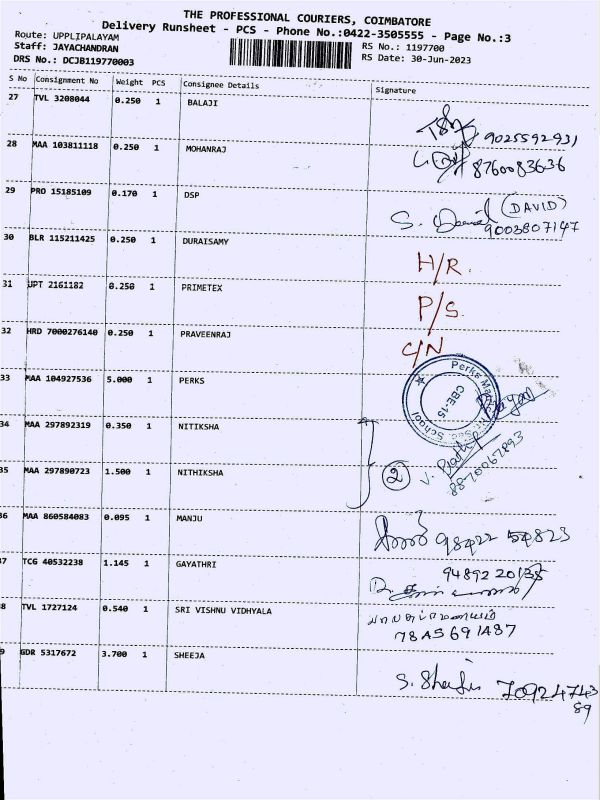 THE PROFESSIONAL COURIERS, COIMBATORE
Delivery Runsheet - PCS - Phone No.:0422-3505555 - Page No.:3
Route: UPPLIPALAYAM
Staff: JAYACHANDRAN RS No.: 1197700
DRS No.: DCJB119770003 RS Date: 30-Jun-2023
S No Consignment No Weight PCS Consignee Details Signature
27 TVL 3208044 0.250 1 BALAJI
9025592931
28 MAA 103811118 0.250 1 MOHANRAJ
8760083636
29 PRO 15185109 0.170 1 DSP
(DAVID)
S. David 9003807147
30 BLR 115211425 0.250 1 DURAISAMY
H/R.
31 UPT 2161182 0.250 1 PRIMETEX
P/S.
32 HRD 7000276140 0.250 1 PRAVEENRAJ
C/N
33 MAA 104927536 5.000 1 PERKS
Perks School
CBE-15
34 MAA 297892319 0.350 1 NITIKSHA
35 MAA 297890723 1.500 1 NITHIKSHA
2
8870067893
36 MAA 860584083 0.095 1 MANJU
98422 54823
37 TCG 40532238 1.145 1 GAYATHRI
94892 20138
38 TVL 1727124 0.540 1 SRI VISHNU VIDHYALA
39 GDR 5317672 3.700 1 SHEEJA
7092474389